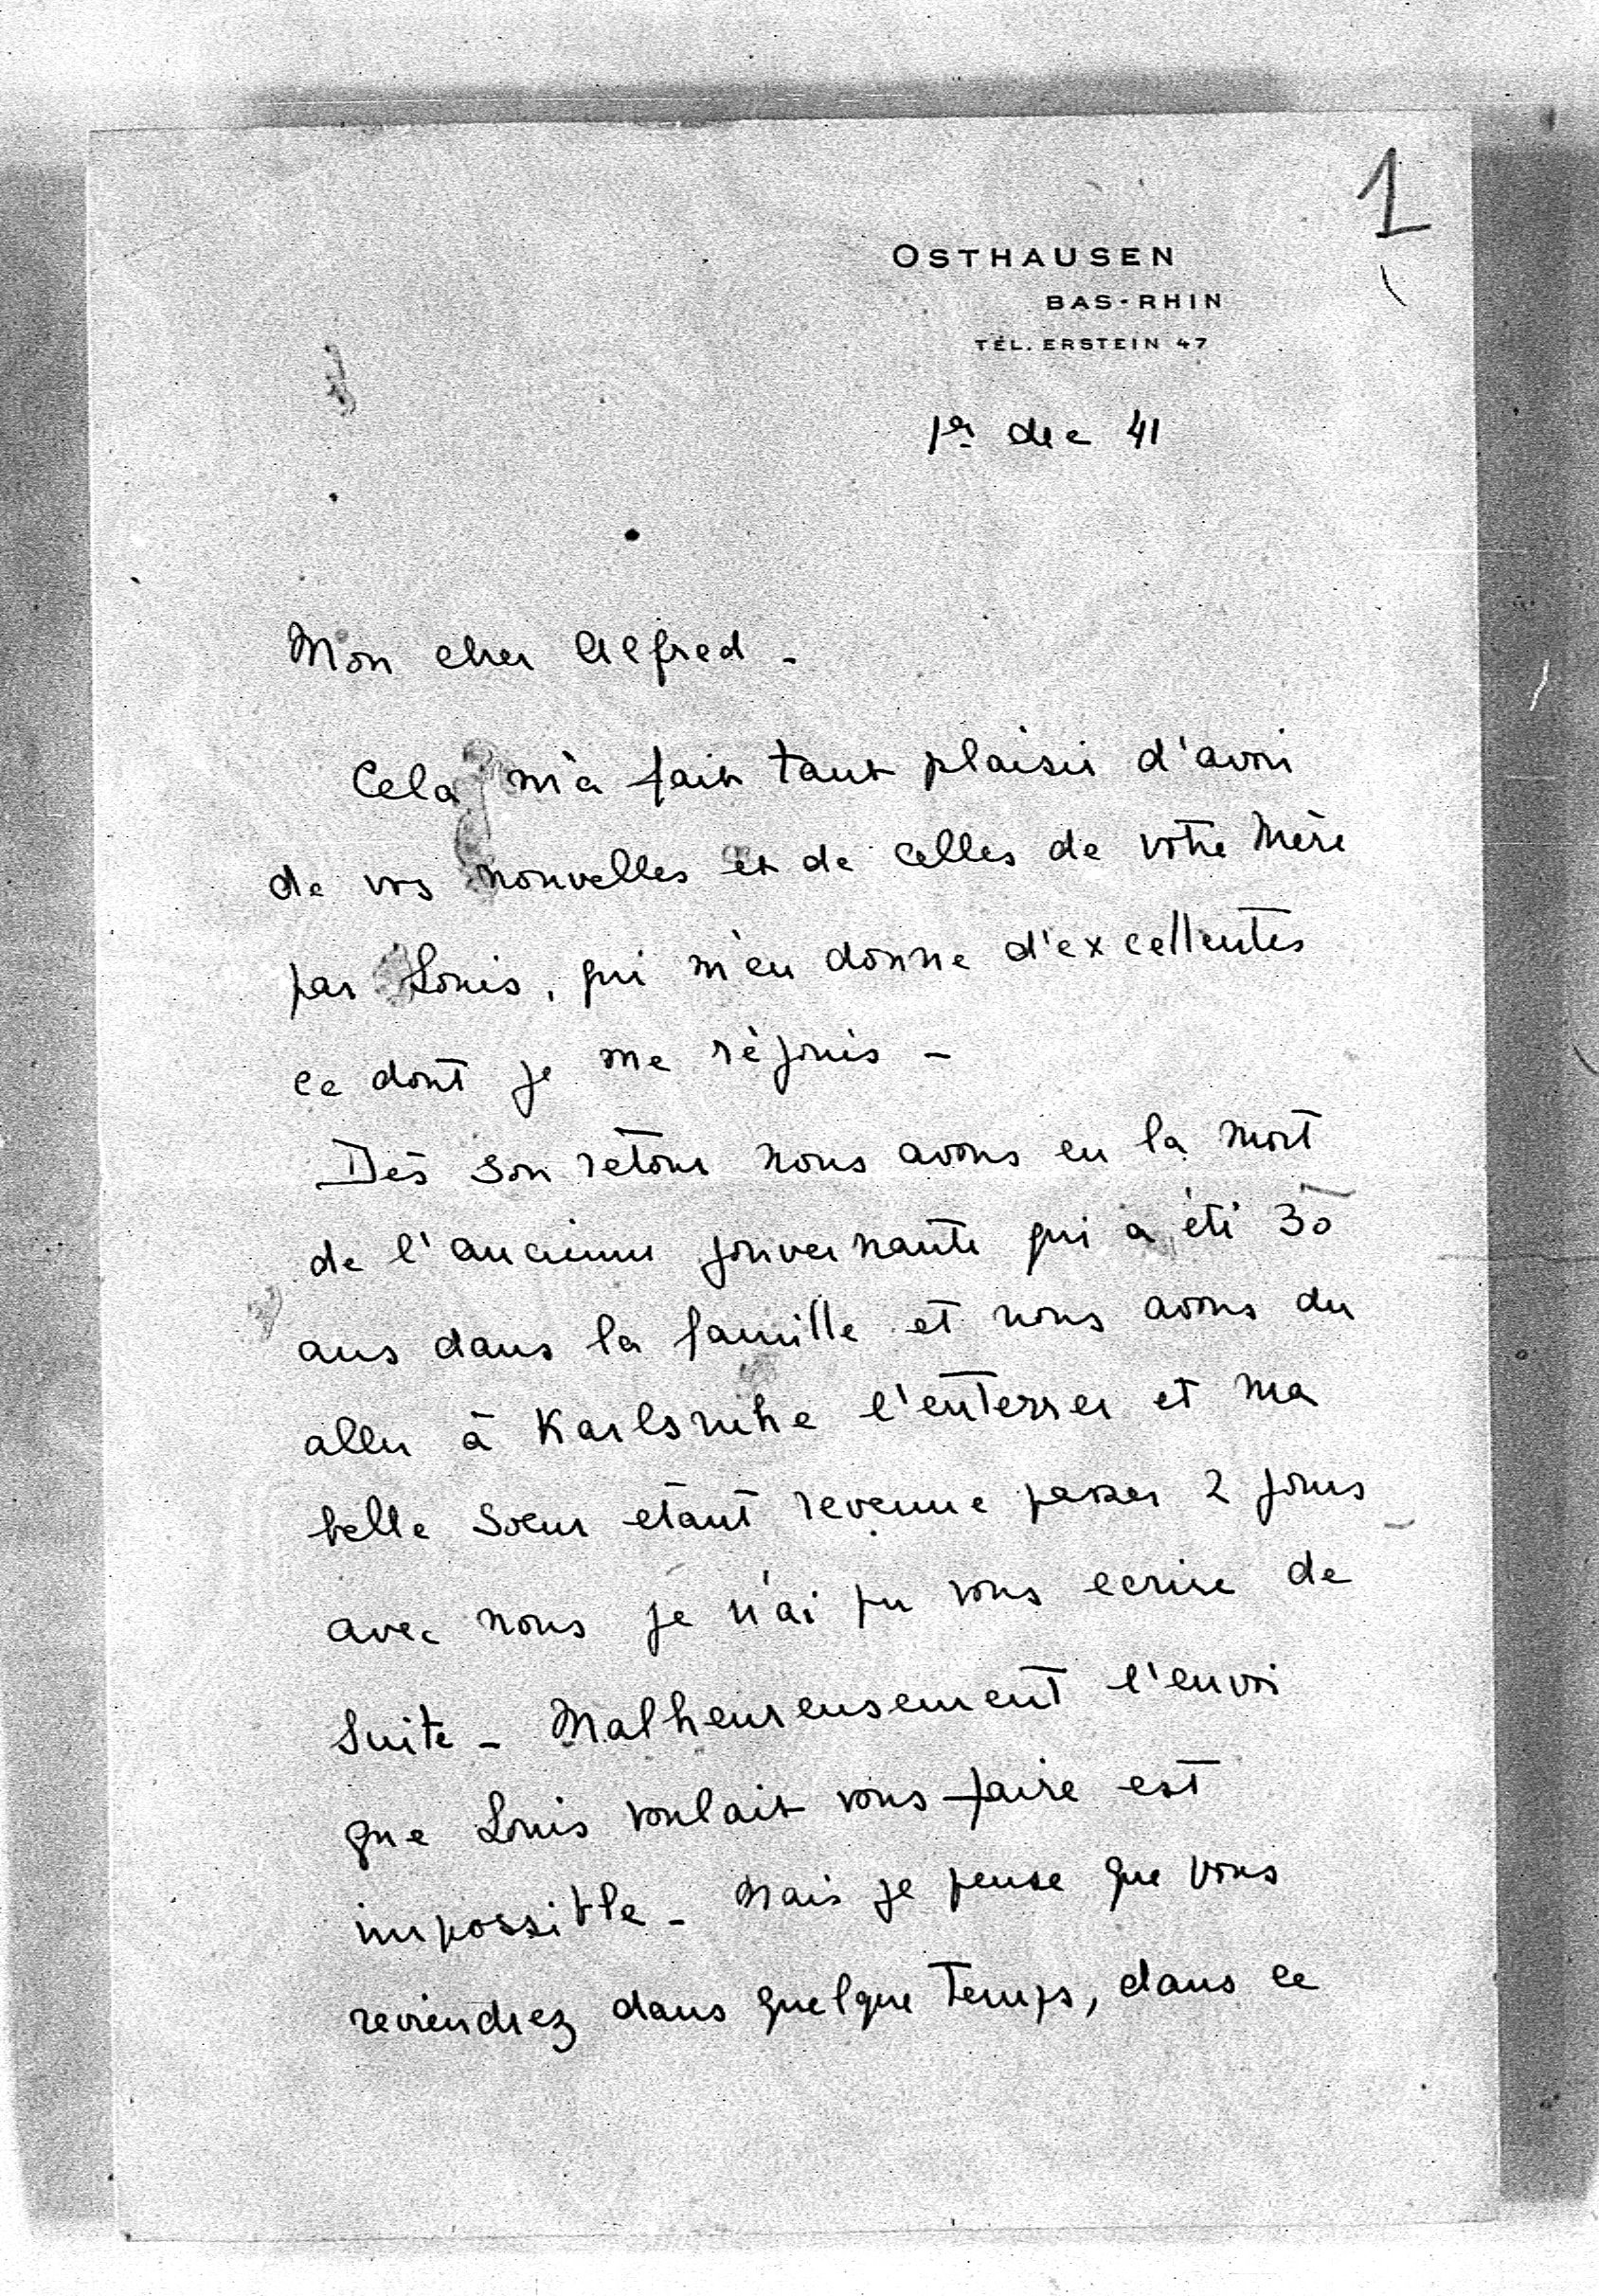 1
OSTHAUSEN
BAS-RHIN
TÉL. ERSTEIN 47
1er dec 41
Mon cher Alfred -
Cela m'a fait tant plaisir d'avoir
de vos nouvelles et de celles de votre Mère
par Louis, qui m'en donne d'excellentes
ce dont je me réjouis -
Dès son retour nous avons eu la mort
de l'ancienne gouvernante qui a été 30
ans dans la famille et nous avons du
aller à Karlsruhe l'enterrer et ma
belle soeur etant revenue passer 2 jours
avec nous je n'ai pu vous ecrire de
suite - Malheureusement l'envoi
que Louis voulait vous faire est
impossible - Mais je pense que vous
reviendrez dans quelque temps, dans ce